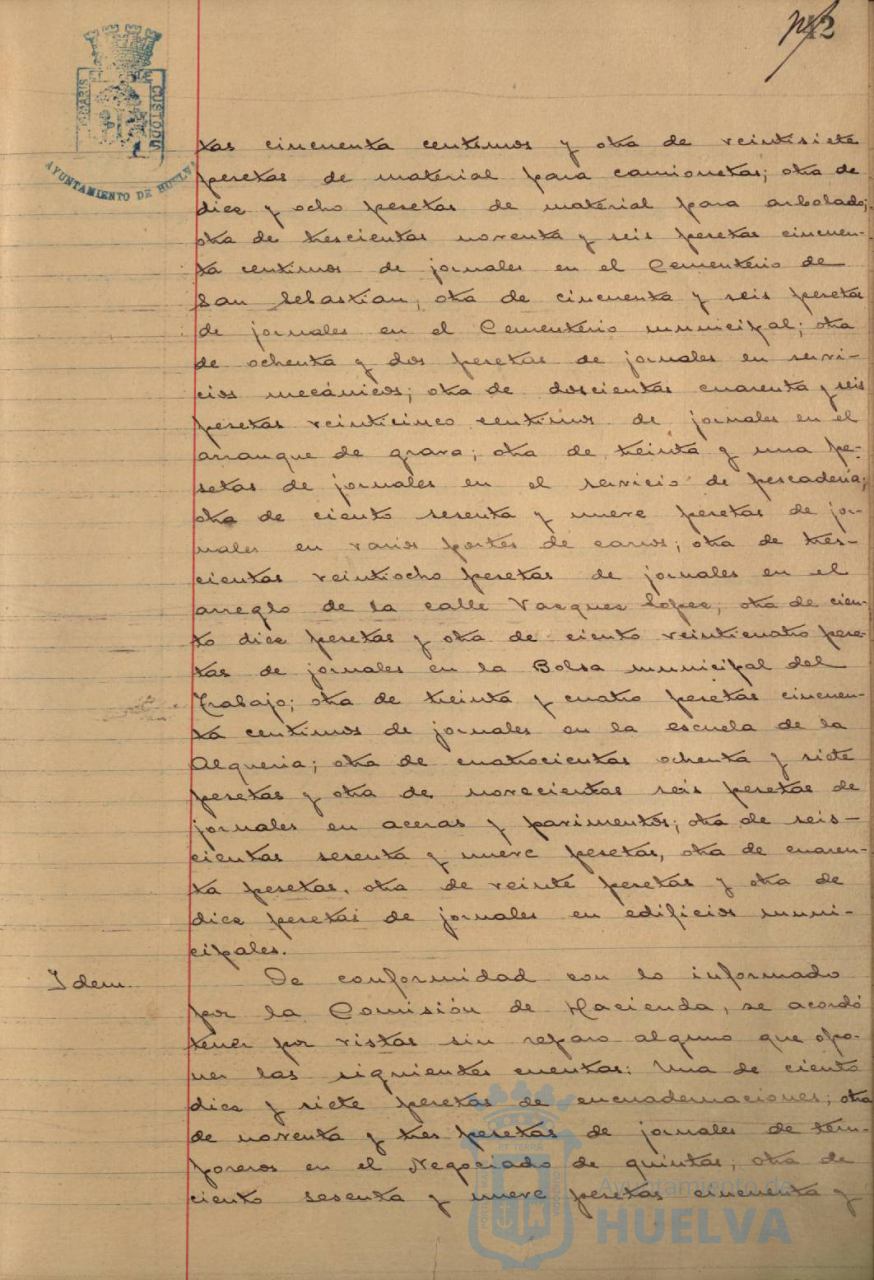 42
PORTUS MARIS
CUSTODIA
AYUNTAMIENTO DE HUELVA
tas cincuenta centimos y otra de veintisiete
pesetas de material para camionetas; otra de
diez y ocho pesetas de material para arbolado;
otra de trescientas noventa y seis pesetas cincuen-
ta centimos de jornales en el Cementerio de
San Sebastian, otra de cincuenta y seis pesetas
de jornales en el Cementerio municipal; otra
de ochenta y dos pesetas de jornales en servi-
cios mecánicos; otra de doscientas cuarenta y seis
pesetas veinticinco centimos de jornales en el
arranque de grava; otra de treinta y una pe-
setas de jornales en el servicio de pescaderia;
otra de ciento sesenta y nueve pesetas de jor-
nales en varios portes de carros; otra de tres-
cientas veintiocho pesetas de jornales en el
arreglo de la calle Vazquez Lopez, otra de cien-
to diez pesetas y otra de ciento veinticuatro pese-
tas de jornales en la Bolsa municipal del
Trabajo; otra de treinta y cuatro pesetas cincuen-
ta centimos de jornales en la escuela de la
Alqueria; otra de cuatrocientas ochenta y siete
pesetas y otra de novecientas seis pesetas de
jornales en aceras y pavimentos; otra de seis-
cientas sesenta y nueve pesetas, otra de cuaren-
ta pesetas, otra de veinte pesetas y otra de
diez pesetas de jornales en edificios muni-
cipales.
Idem. De conformidad con lo informado
por la Comisión de Hacienda, se acordó
tener por vistas sin reparo alguno que opo-
ner las siguientes cuentas: Una de ciento
diez y siete pesetas de encuadernaciones; otra
de noventa y tres pesetas de jornales de tem-
poreros en el Negociado de quintas; otra de
ciento sesenta y nueve pesetas cincuenta y
Ayuntamiento de
HUELVA